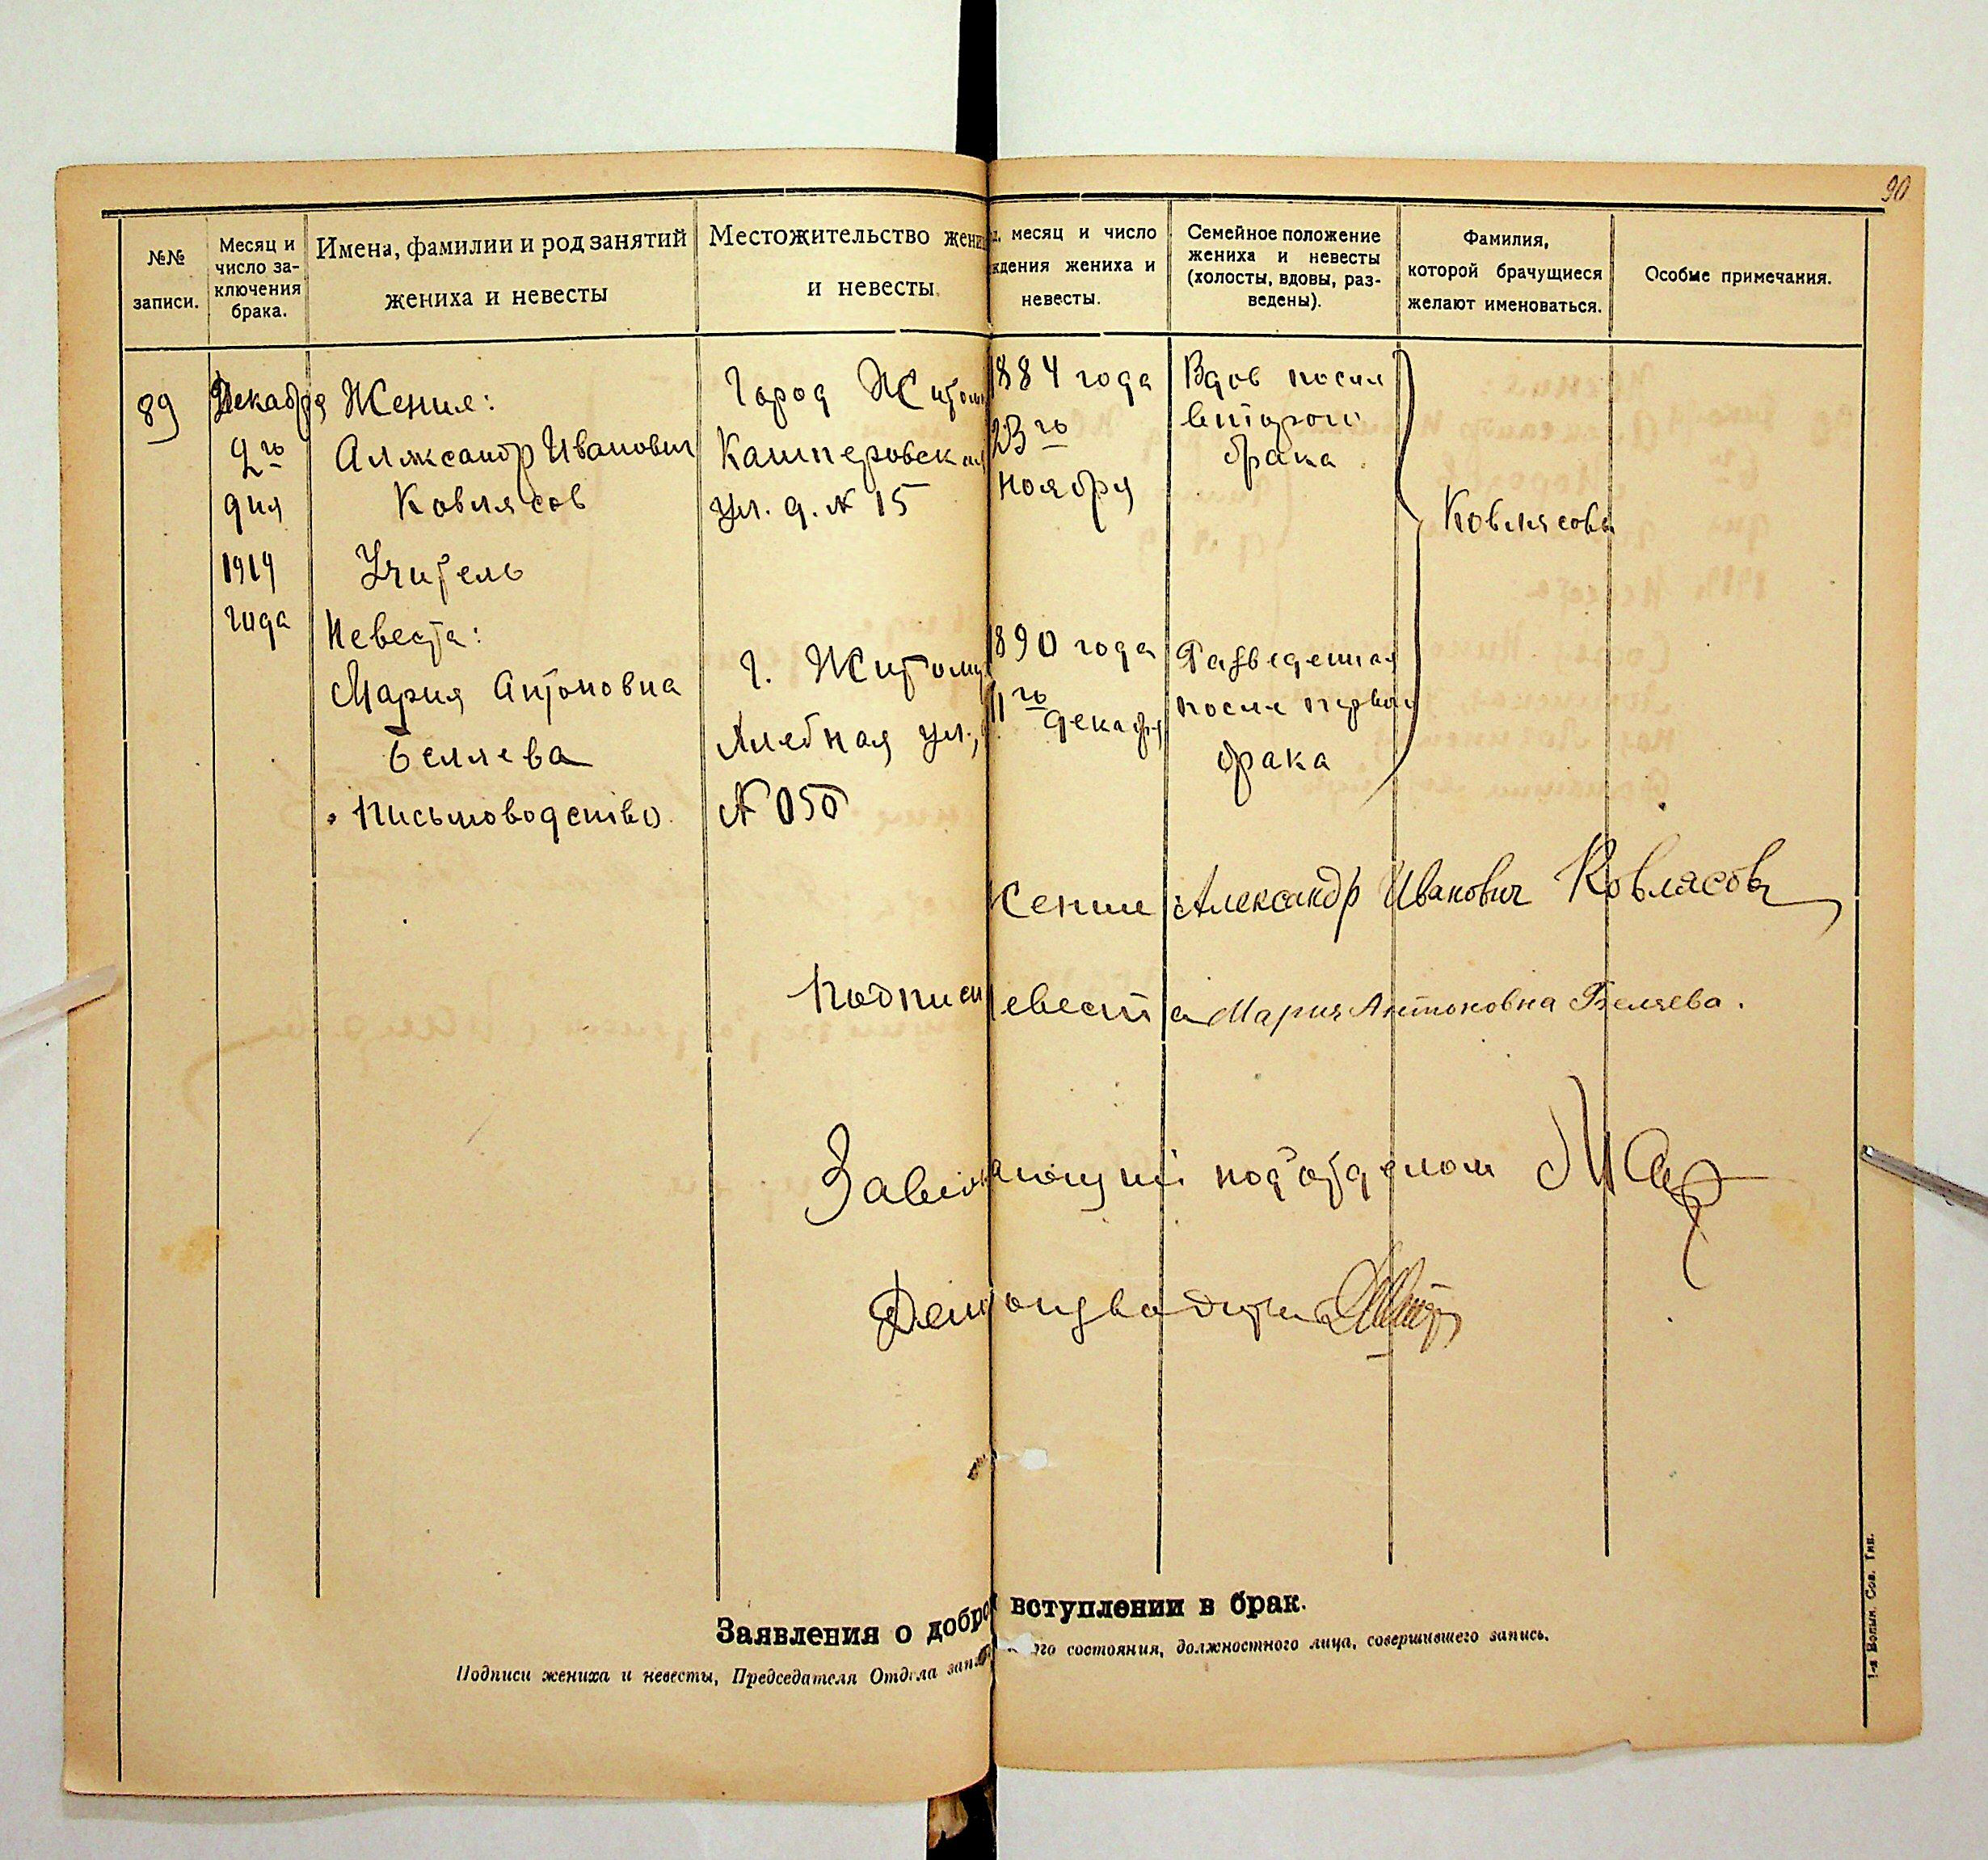 90
№№
записи.
Месяц и
число за-
ключения
брака.
Имена, фамилии и род занятий
жениха и невесты
Местожительство жени
и невесты
месяц и число
ждения жениха и
невесты.
Семейное положение
жениха и невесты
(холосты, вдовы, раз-
ведены).
Фамилия,
которой брачущиеся
желают именоваться.
Особые примечания.
89
Декабря
2го
дня
1919
года
Жених:
Александр Иванович
Ковлясов
Учитель
Невеста:
Мария Антоновна
Беляева
Письмоводство
Город Житом
ул. д. № 15
г. Житоми
Хлебная ул.,
1884 года
23го
ноября
1890 года
11го декабря
Вдов после
второго
брака
Разведенная
после первого
брака
Ковлясовы
Жених Александр Иванович Ковлясов
Подписи
евеста Мария Антоновна Беляева.
подотделом
Делопроизводитель
Заявления о добро вступлении в брак.
Подписи жениха и невесты, Председателя Отдела запи ого состояния, должностного лица, совершившего запись.
1-я Волын. Сов. Тип.